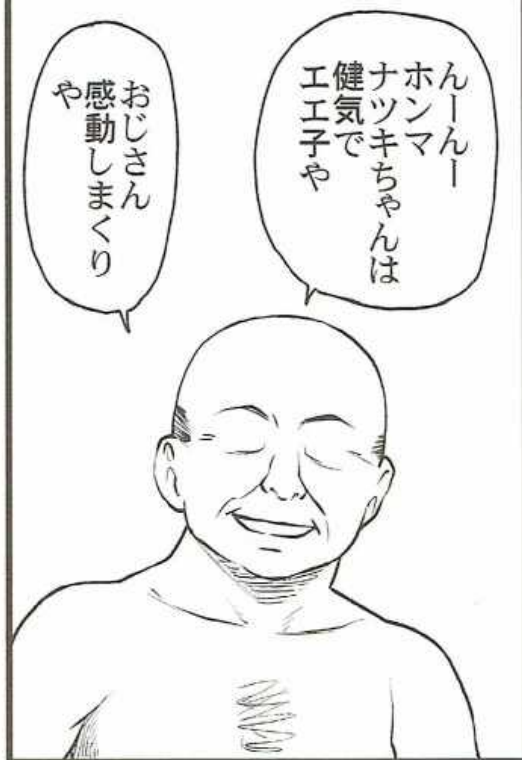 んーんー
ホンマ
ナツキちゃんは
健気で
エエ子や
おじさん
感動しまくり
や